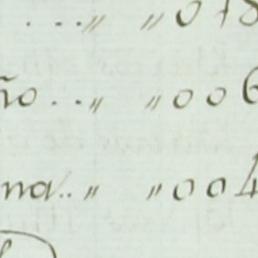 ...〃 〃018
ño...〃 〃006
na..〃 〃004